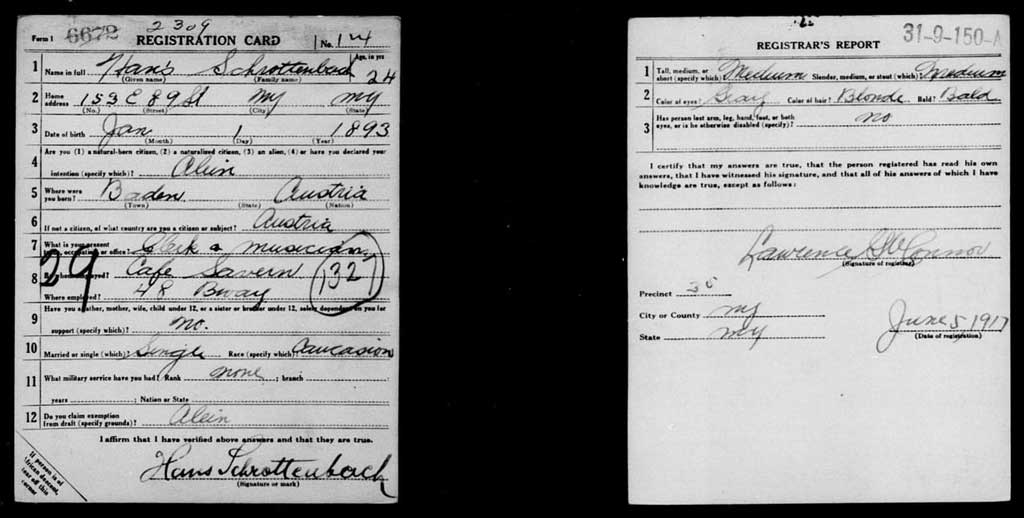 2309
Form 1 6672 REGISTRATION CARD No. 14
1 Name in full Hans Schrottenbach Age, in yrs 24
(Given name) (Family name)
2 Home address 153 E 89 St NY NY
(No.) (Street) (City) (State)
3 Date of birth Jan 1 1893
(Month) (Day) (Year)
4 Are you (1) a natural-born citizen, (2) a naturalized citizen, (3) an alien, (4) or have you declared your
intention (specify which)? Alein
5 Where were you born? Baden Austria
(Town) (State) (Nation)
6 If not a citizen, of what country are you a citizen or subject? Austria
7 What is your present trade, occupation, or office? Clerk a musician
29
8 By whom employed? Cafe Savern 132
Where employed? 48 Bway
9 Have you a father, mother, wife, child under 12, or a sister or brother under 12, solely dependent on you for
support (specify which)? no.
10 Married or single (which)? Single Race (specify which)? Caucasion
11 What military service have you had? Rank none ; branch
years ; Nation or State
12 Do you claim exemption from draft (specify grounds)? Alein
I affirm that I have verified above answers and that they are true.
Hans Schrottenbach
(Signature or mark)
If person is of
African descent,
tear off this
corner
31-9-150-A
REGISTRAR'S REPORT
1 Tall, medium, or short (specify which)? Medium Slender, medium, or stout (which)? Medium
2 Color of eyes? Gray Color of hair? Blonde Bald? Bald
3 Has person lost arm, leg, hand, foot, or both eyes, or is he otherwise disabled (specify)? no
I certify that my answers are true, that the person registered has read his own
answers, that I have witnessed his signature, and that all of his answers of which I have
knowledge are true, except as follows:
Lawrence O'Connor
(Signature of registrar)
Precinct 30
City or County NY
State NY
June 5 1917
(Date of registration)